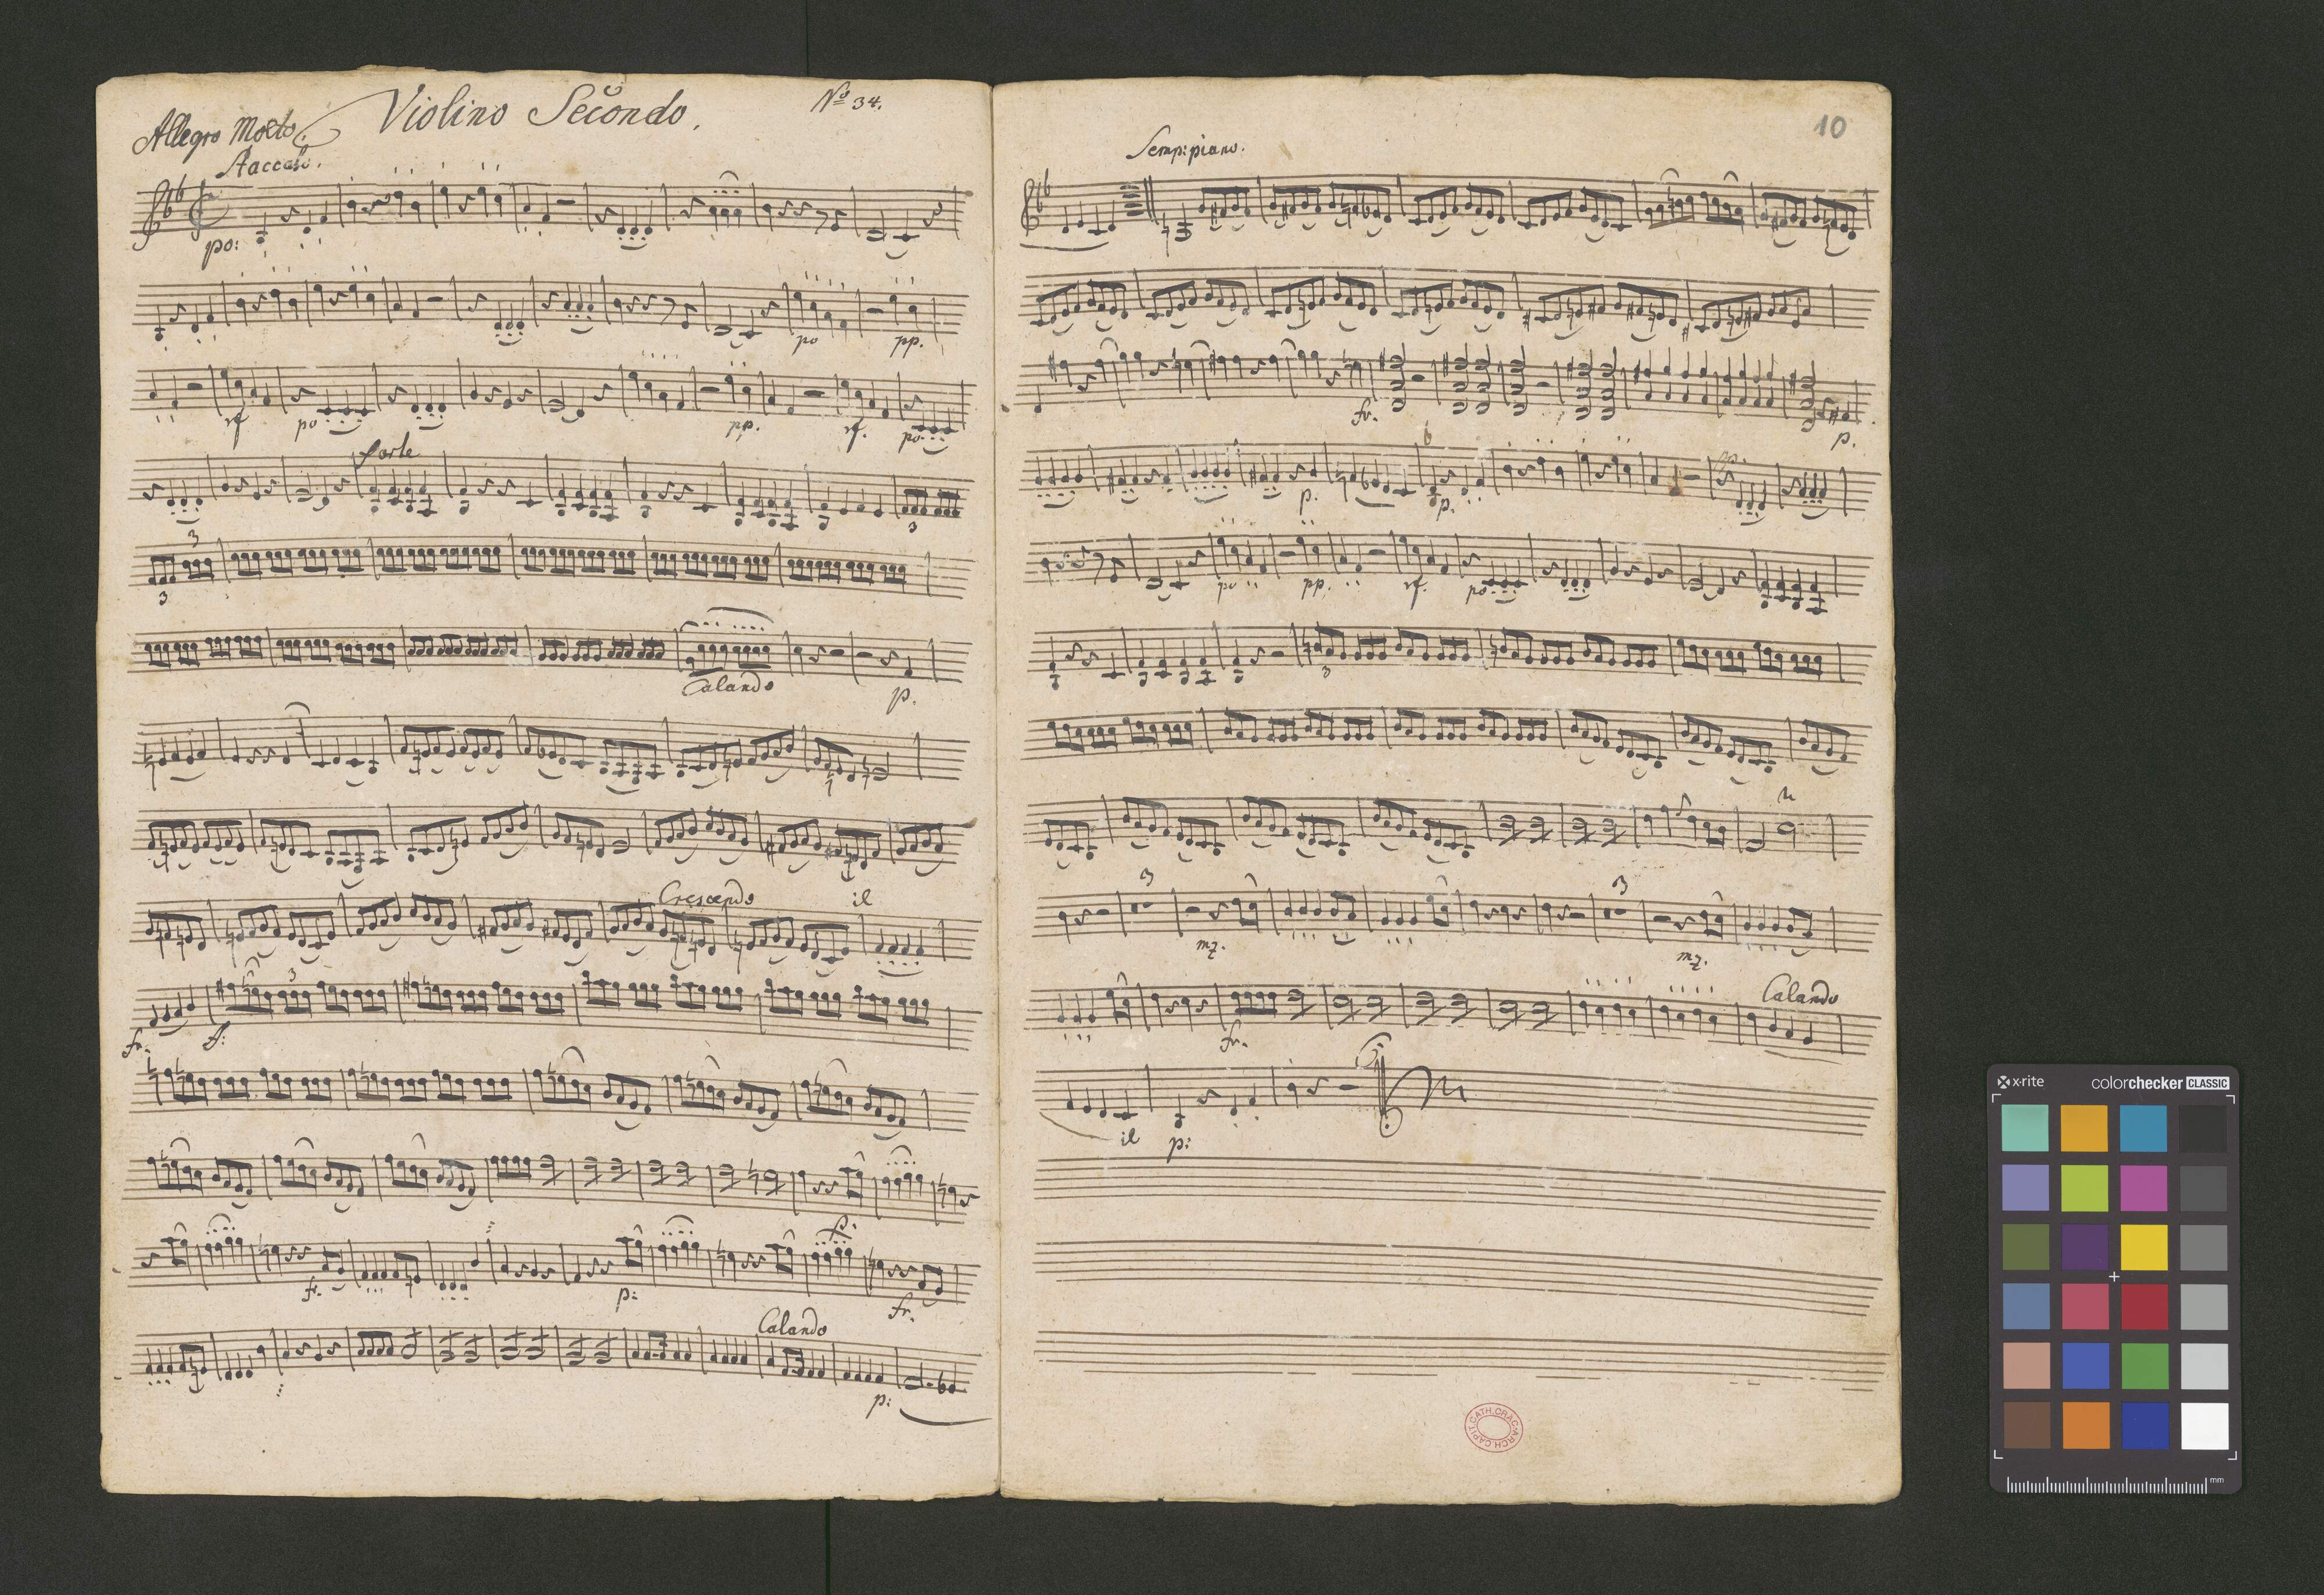 Violino Secondo.
No 34.
Allegro Molto
Staccato.
po:
po
pp.
rf
po
pp.
rf.
po.
forte
3
3
3
Calando
p.
Crescendo
il
3
fr.
f:
p:
fr.
p:
fr.
Calando
p:
10
Semp: piano.
fr.
p.
p.
p.
pp.
po
pp.
rf.
po
3
3
3
mz.
mz.
fr.
Calando
il
p:
CATH. CRAC. ARCH. CAPIT.
x-rite
colorchecker CLASSIC
mm